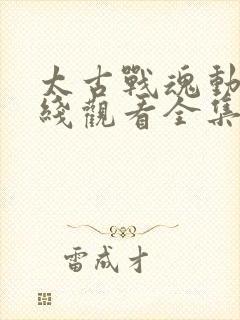 太古戰魂動
綫觀看全集
雷成才